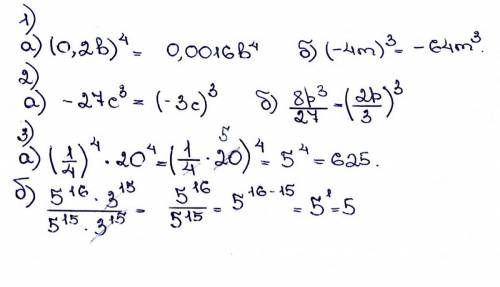 1)
а) (0,2b)⁴ = 0,0016b⁴ б) (-4m)³ = -64m³.
2)
а) -27c³ = (-3c)³ б) 8p³/27 = (2p/3)³
3)
а) (1/4)⁴ · 20⁴ = (1/4 · 20)⁴ = 5⁴ = 625.
5
б) 5¹⁶ · 3¹⁵ / 5¹⁵ · 3¹⁵ = 5¹⁶ / 5¹⁵ = 5¹⁶⁻¹⁵ = 5¹ = 5